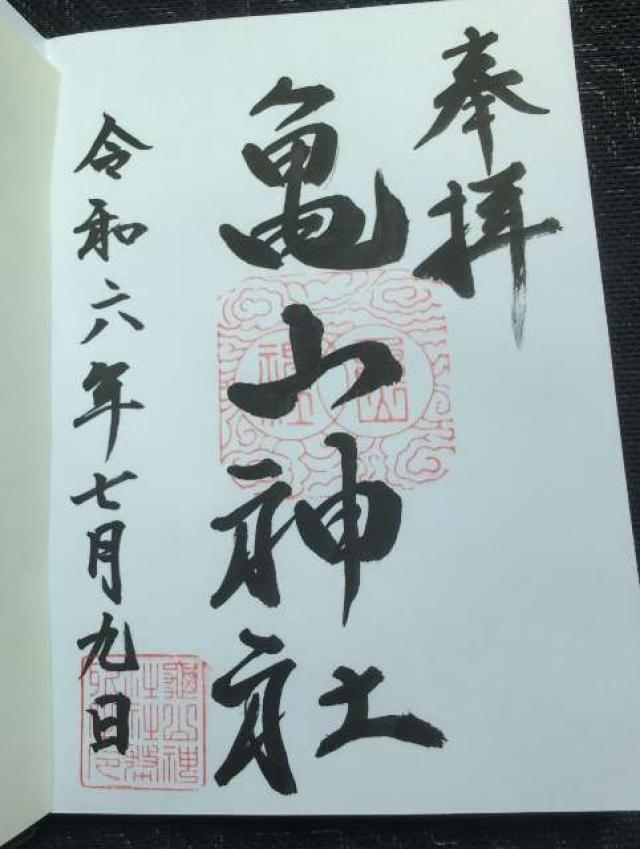 奉拝
亀山神社
令和六年七月九日